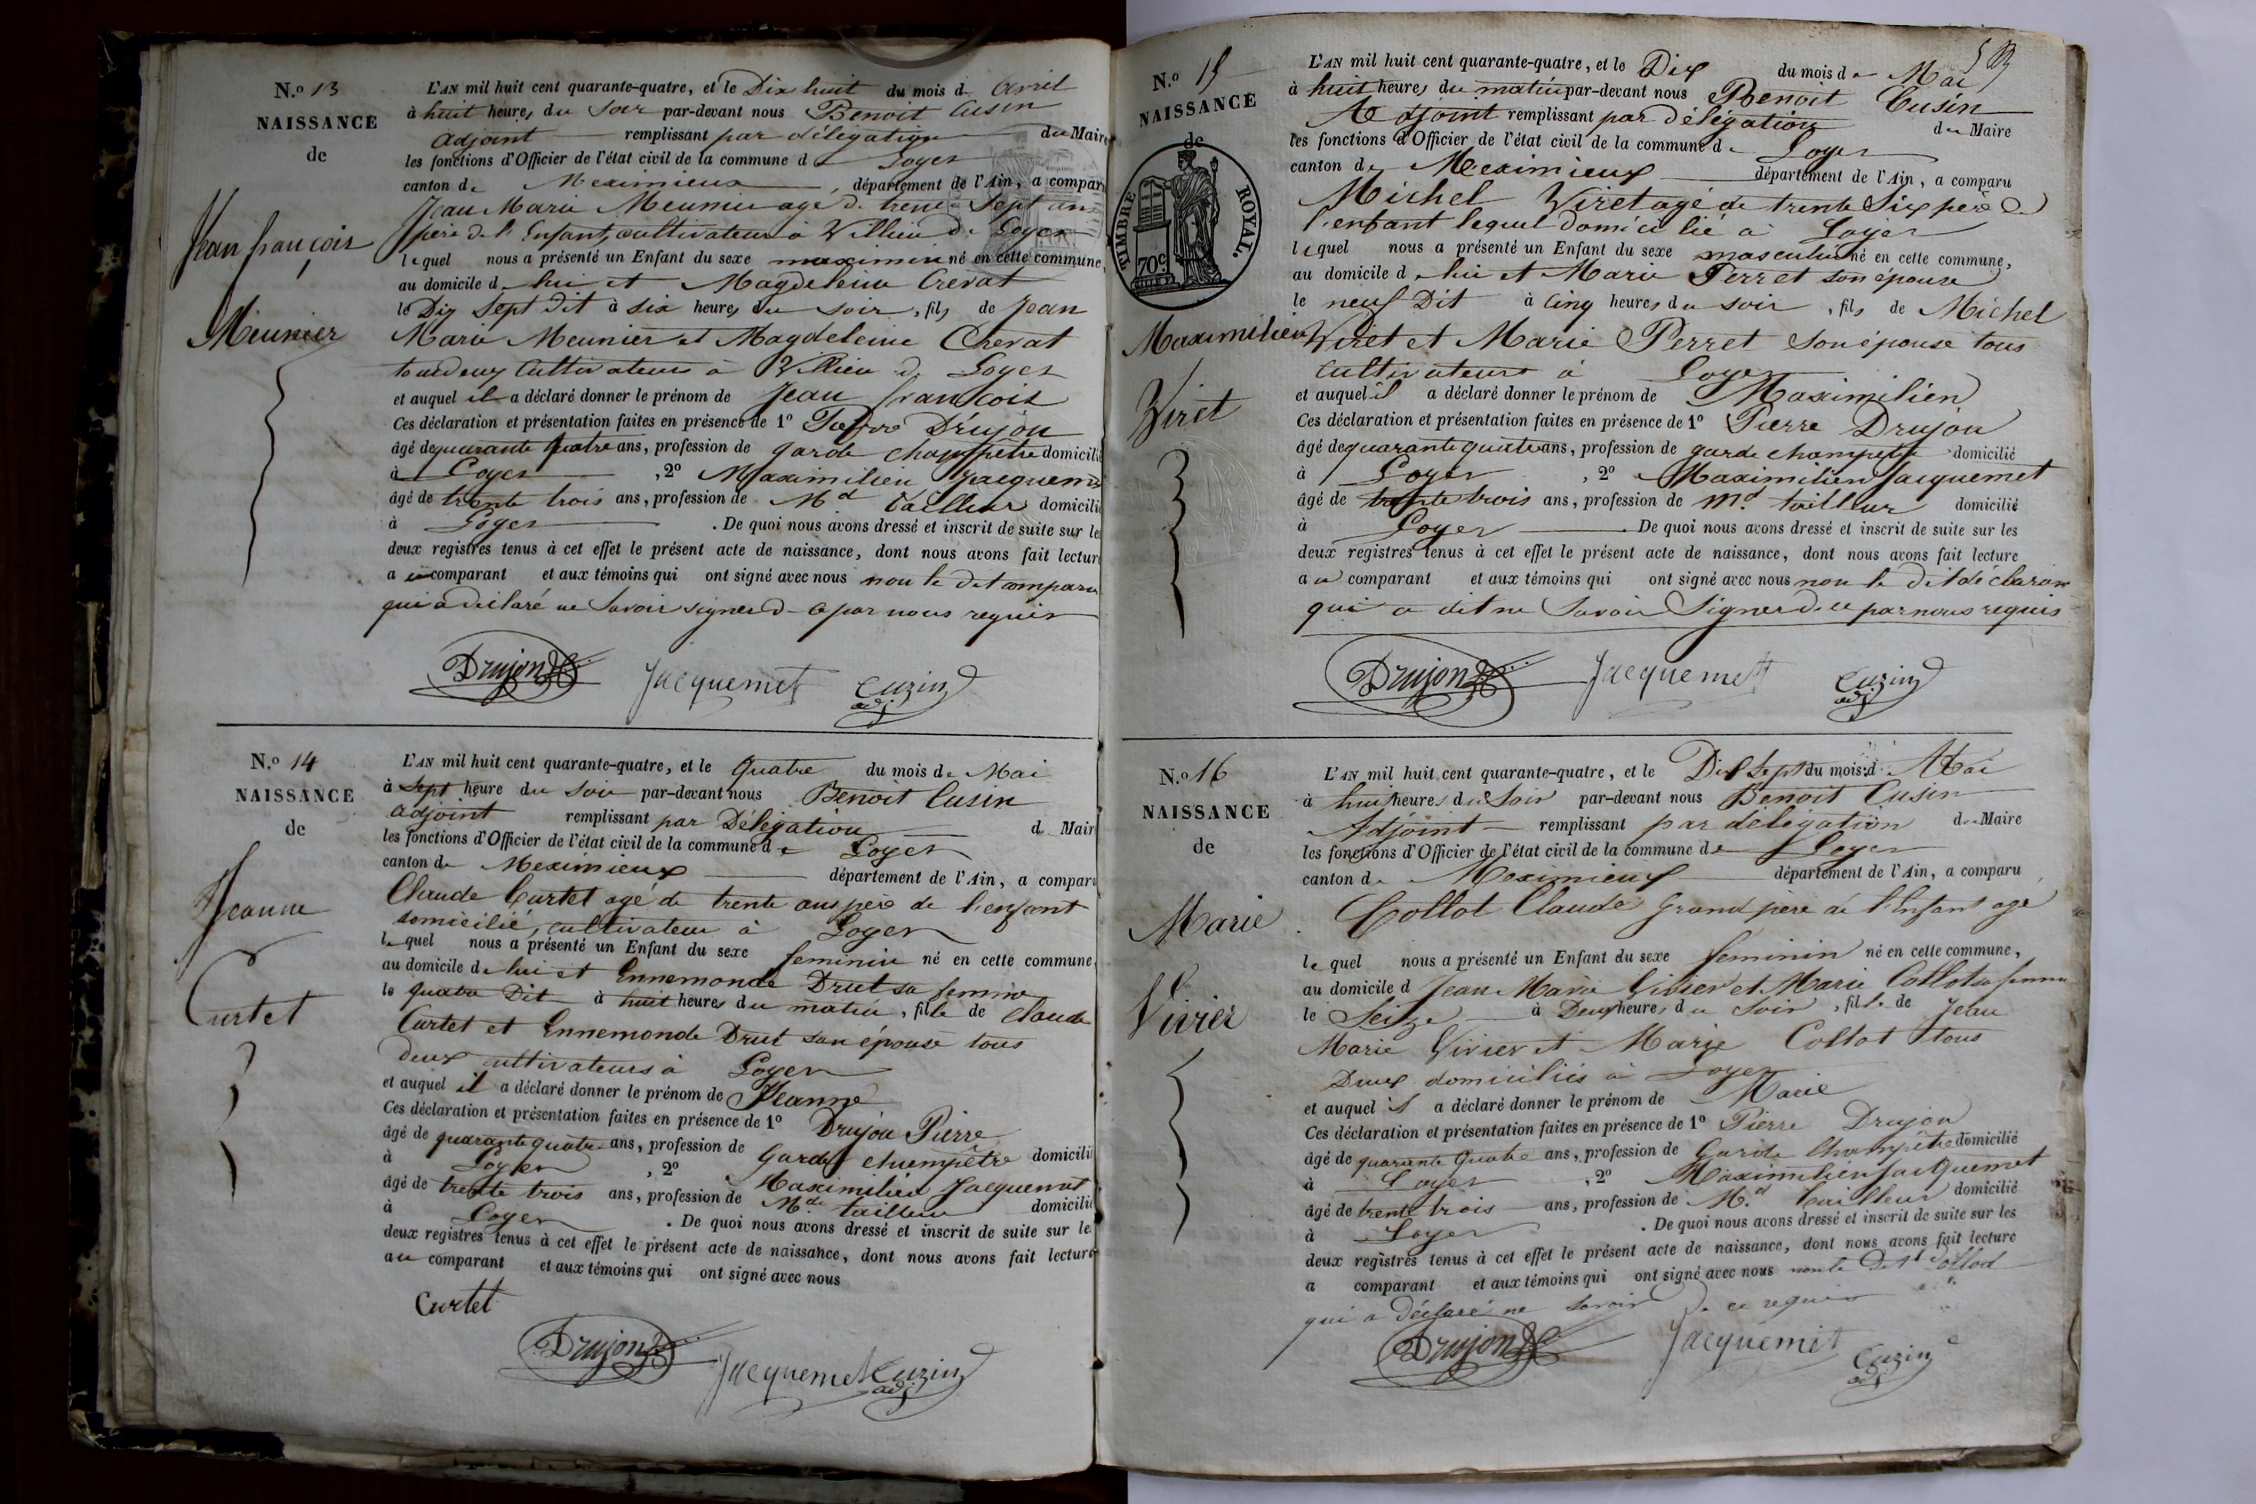 N.o 13
NAISSANCE
de
Jean françois
Meunier
L'AN mil huit cent quarante-quatre, et le Dix huit du mois d avril
à huit heures du Soir par-devant nous Benoit Cusin
adjoint remplissant par délégation du Maire
les fonctions d'Officier de l'état civil de la commune de Loyes
canton de Meximieux, département de l'Ain, a comparu
Jean Marie Meunier agé de trente Sept ans
père de l'Enfant, cultivateur à Villieu de Loyes
lequel nous a présenté un Enfant du sexe né en cette commune,
au domicile de lui et Magdeleine Crevat
le Dix Sept dit à six heures du soir, fils de Jean
Marie Meunier et Magdeleine Crevat
tous deux Cultivateurs à Villieu de Loyes
et auquel il a déclaré donner le prénom de Jean françois
Ces déclaration et présentation faites en présence de 1o Drujon
âgé de quarante quatre ans, profession de garde champêtre domicilié
à Loyes, 2o Maximilien Jacquemet
âgé de trente trois ans, profession de Md tailleur domicilié
à Loyes. De quoi nous avons dressé et inscrit de suite sur les
deux registres tenus à cet effet le présent acte de naissance, dont nous avons fait lecture
au comparant et aux témoins qui ont signé avec nous non le dit comparant
qui a déclaré ne Savoir signer de ce par nous requis
Drujon Jacquemet Cuzin
adj.
N.o 14
NAISSANCE
de
Jeanne
Curtet
L'AN mil huit cent quarante-quatre, et le Quatre du mois de Mai
à Sept heure du Soir par-devant nous Benoit Cusin
adjoint remplissant par Délégation d Maire
les fonctions d'Officier de l'état civil de la commune de Loyes
canton de Meximieux département de l'Ain, a comparu
Claude Curtet agé de trente ans père de l'enfant
domicilié, cultivateur à Loyes
lequel nous a présenté un Enfant du sexe feminin né en cette commune,
au domicile de lui et Ennemonde Druet sa femme
le quatre Dit à huit heures du matin, fille de Claude
Curtet et Ennemonde Druet son épouse tous
Deux cultivateurs à Loyes
et auquel il a déclaré donner le prénom de Jeanne
Ces déclaration et présentation faites en présence de 1o Drujon Pierre
âgé de quarante quatre ans, profession de Garde champêtre domicilié
à Loyes, 2o Maximilien Jacquemet
âgé de trente trois ans, profession de Md tailleur domicilié
à Loyes. De quoi nous avons dressé et inscrit de suite sur les
deux registres tenus à cet effet le présent acte de naissance, dont nous avons fait lecture
au comparant et aux témoins qui ont signé avec nous
Curtet
Drujon Jacquemet Cuzin
adj.
N.o 15
NAISSANCE
de
TIMBRE ROYAL.
70c
Maximilien
Viret
L'AN mil huit cent quarante-quatre, et le Dix du mois de Mai
à huit heures du matin par-devant nous Benoit Cusin
Adjoint remplissant par Délégation du Maire
les fonctions d'Officier de l'état civil de la commune de Loyes
canton de Meximieux département de l'Ain, a comparu
Michel Viret agé de trente Six père de
l'enfant lequel domicilié à Loyes
lequel nous a présenté un Enfant du sexe masculin né en cette commune,
au domicile de lui et Marie Perret son épouse
le neuf Dit à Cinq heures du soir, fils de Michel
Viret et Marie Perret son épouse tous
Cultivateurs à Loyes
et auquel il a déclaré donner le prénom de Maximilien
Ces déclaration et présentation faites en présence de 1o Pierre Drujon
âgé de quarante quatre ans, profession de garde champetre domicilié
à Loyes, 2o Maximilien Jacquemet
âgé de trente trois ans, profession de Md. tailleur domicilié
à Loyes. De quoi nous avons dressé et inscrit de suite sur les
deux registres tenus à cet effet le présent acte de naissance, dont nous avons fait lecture
au comparant et aux témoins qui ont signé avec nous non le dit déclarant
qui a dit ne Savoir Signer de ce par nous requis
Drujon Jacquemet Cuzin
adj.
N.o 16
NAISSANCE
de
Marie
Vivier
L'AN mil huit cent quarante-quatre, et le Dix Sept du mois d Mai
à huit heures du Soir par-devant nous Benoit Cusin
Adjoint remplissant par délégation du Maire
les fonctions d'Officier de l'état civil de la commune de Loyes
canton de Meximieux département de l'Ain, a comparu
Collot Claude Grand père de l'Enfant agé
lequel nous a présenté un Enfant du sexe féminin né en cette commune,
au domicile d Jean Marie Vivier et Marie Collot sa femme
le Seize à Deux heures du Soir, fille de Jean
Marie Vivier et Marie Collot tous
Deux domiciliés à Loyes
et auquel il a déclaré donner le prénom de Marie
Ces déclaration et présentation faites en présence de 1o Pierre Drujon
âgé de quarante Quatre ans, profession de Garde Champêtre domicilié
à Loyes, 2o Maximilien Jacquemet
âgé de trente trois ans, profession de Md. tailleur domicilié
à Loyes. De quoi nous avons dressé et inscrit de suite sur les
deux registres tenus à cet effet le présent acte de naissance, dont nous avons fait lecture
a comparant et aux témoins qui ont signé avec nous non le Dit Collot
qui a Déclaré ne Savoir de ce requis
Drujon Jacquemet Cuzin
adj.